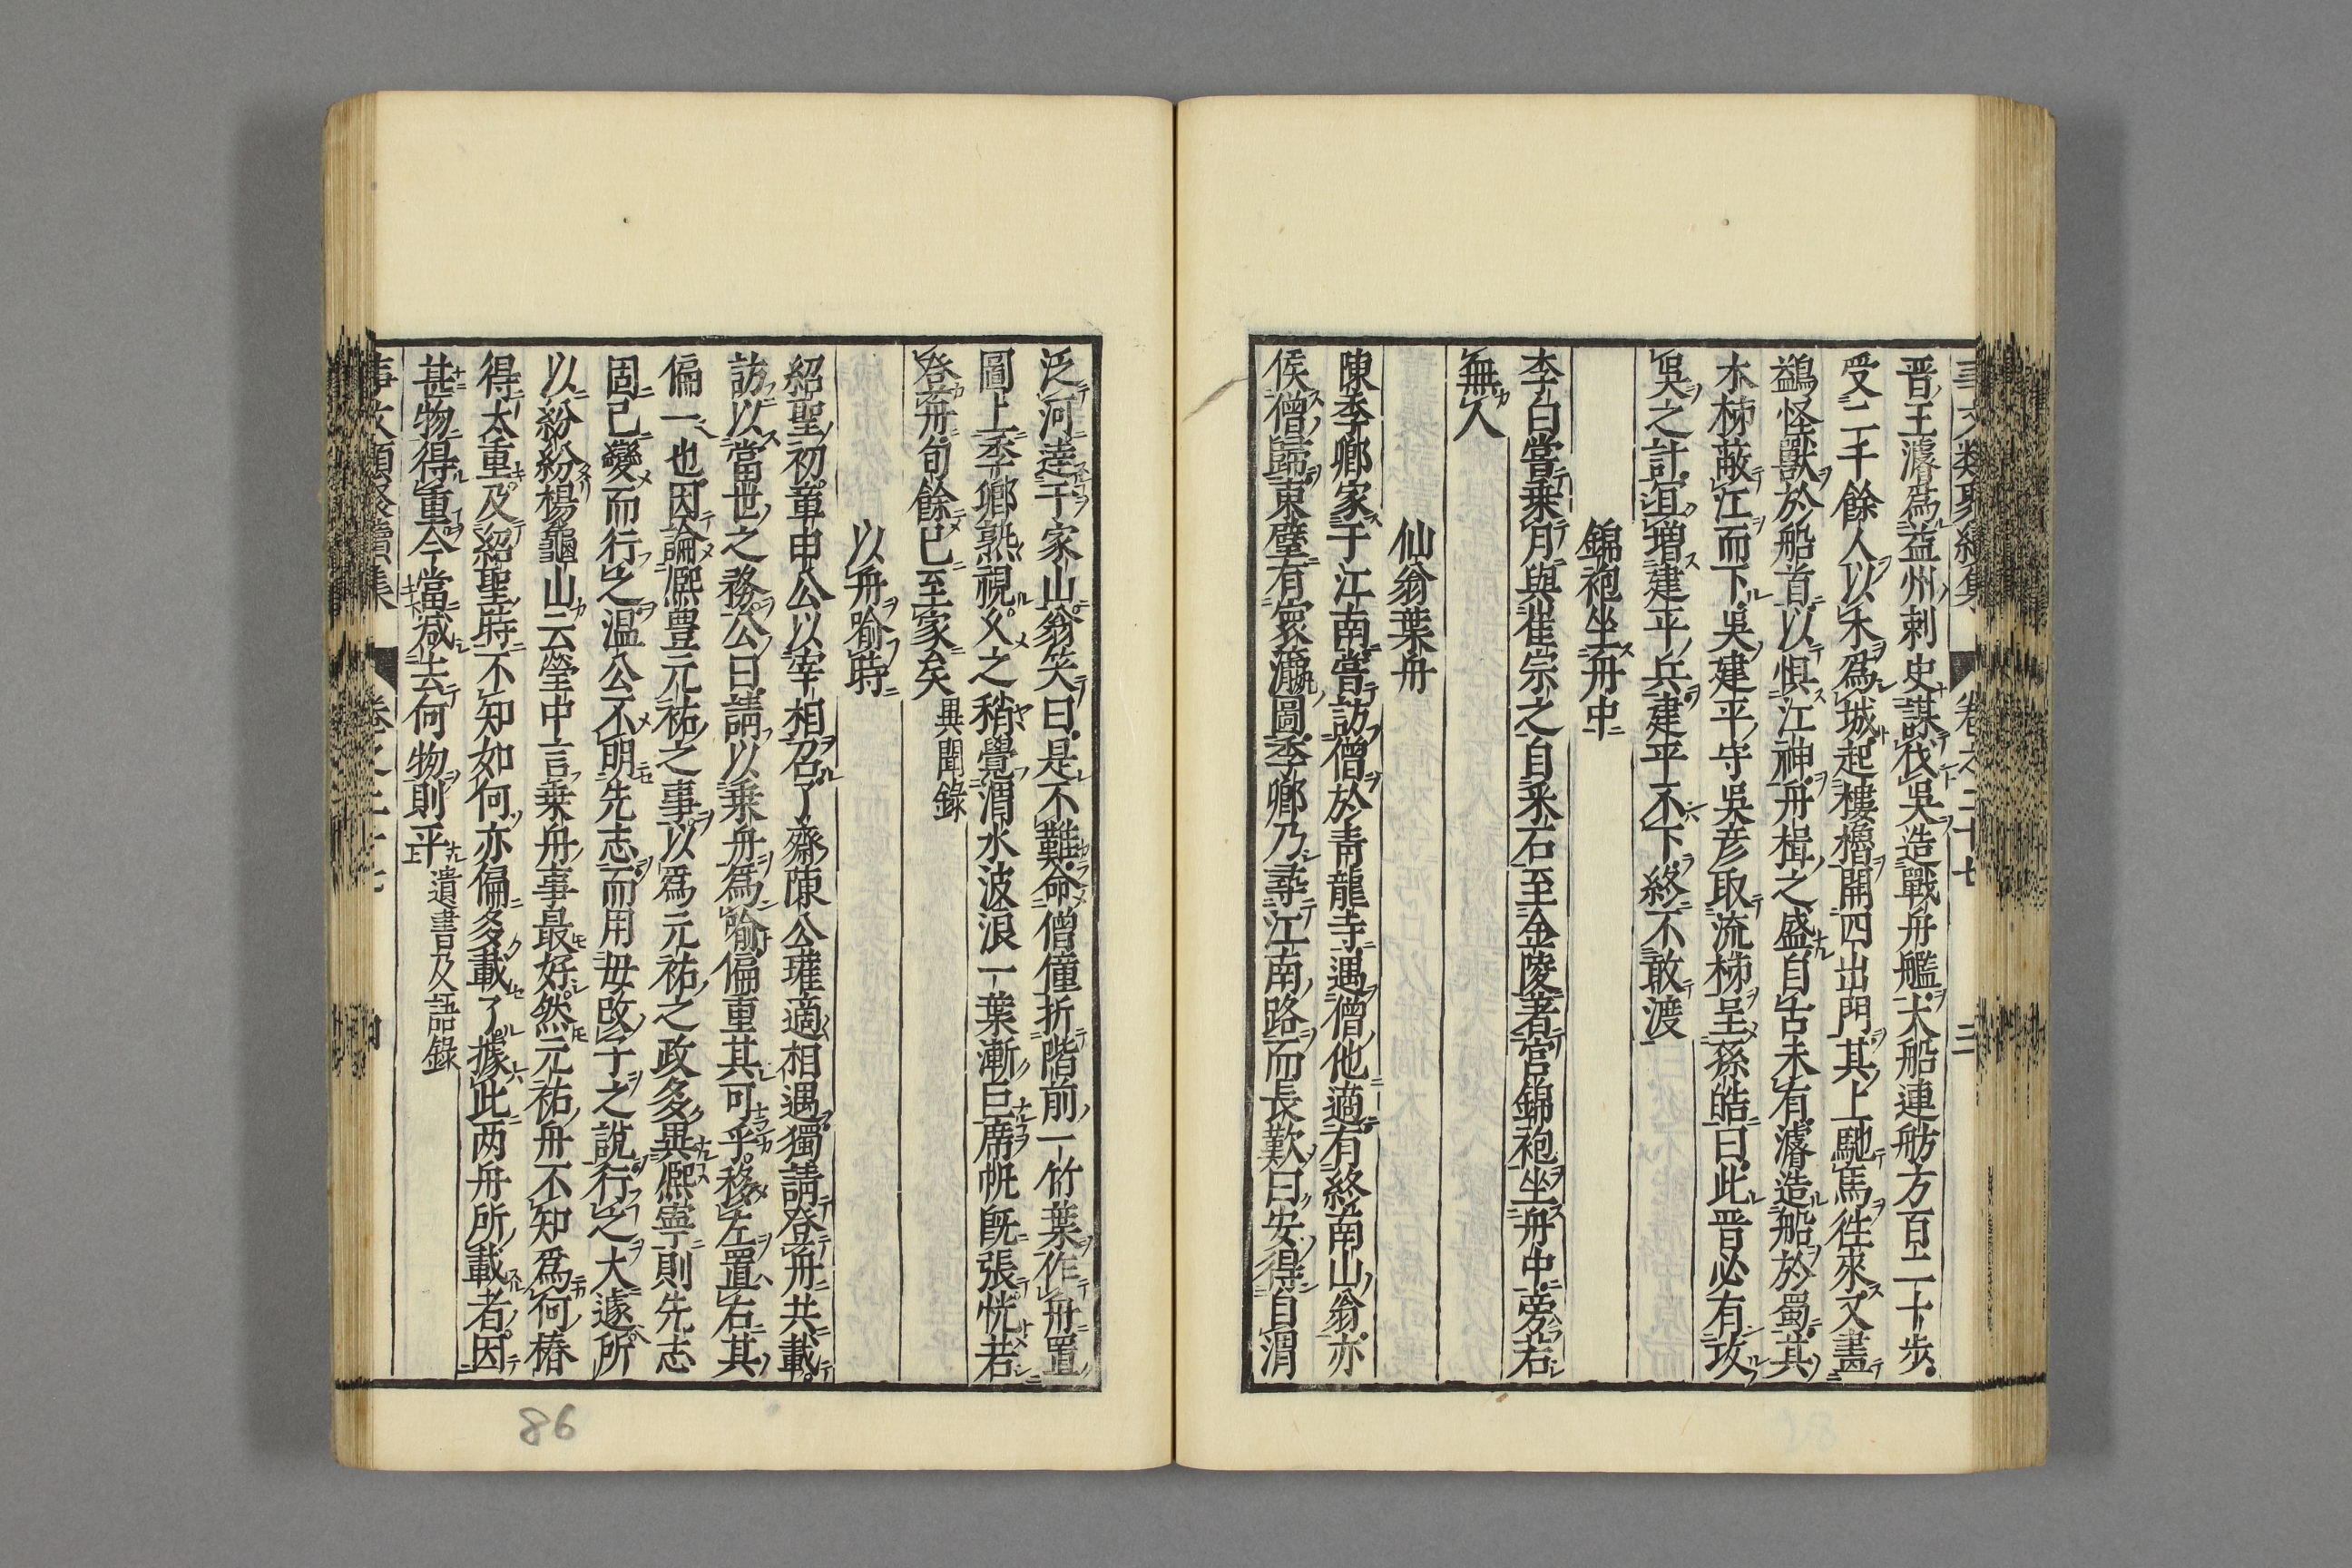 事文類聚續集 卷之二十七 二
晋王濬爲益州刺史謀伐吳造戰舟艦大船連舫方百二十步
受二千餘人以木爲城起樓櫓開四出門其上馳馬徃來又畵
鷁怪獸於船首以惧江神舟楫之盛自古未有濬造船於蜀其
木柹蔽江而下吳建平守吳彦取流柹呈孫皓曰此晋必有攻
吳之計冝增建平兵建平不下終不敢渡
錦袍坐舟中
李白嘗乗月與崔宗之自釆石至金陵著宫錦袍坐舟中旁若
無人
仙翁葉舟
陳季卿家于江南嘗訪僧於靑龍寺遇僧他適有終南山翁亦
侯僧歸東壁有寰瀛圖季卿乃尋江南路而長歎曰安得自渭
泛河逹于家山翁笑曰是不難命僧僮折階前一竹葉作舟置
圖上季卿熟視乆之稍覺渭水波浪一葉漸巨席帆旣張恍若
登舟旬餘已至家矣 異聞錄
以舟喻時
紹聖初章申公以宰相召了齋陳公瓘適相遇獨請登舟共載
訪以當世之務公曰請以乗舟爲喻偏重其可乎移左置右其
偏一也因論熈豊元祐之事以爲元祐之政多異熈寧則先志
固已變而行之温公不明先志而用毋改子之說行之大遽所
以紛紛楊龜山云瑩中言乗舟事最好然元祐舟不知爲何椿
得太重及紹聖時不知如何亦偏多載了據此两舟所載者因
甚物得重今當減去何物則平 遺書及語錄
事文類聚續集 卷之二十七
86